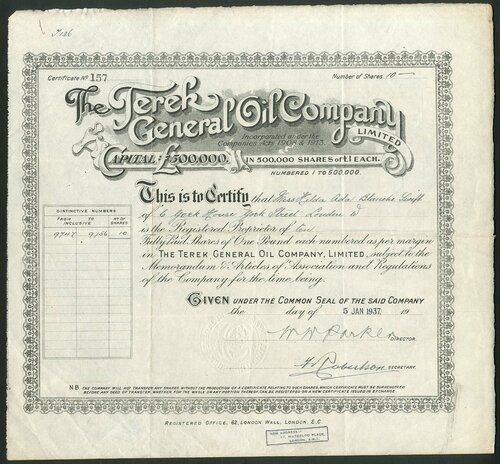 F126
Certificate No 157
Number of Shares 10
The Terek
General Oil Company
LIMITED
Incorporated under the
Companies Acts 1908 & 1913.
CAPITAL: £500,000,
IN 500,000 SHARES OF £1 EACH.
NUMBERED 1 TO 500,000.
This is to Certify that Miss Hilda Ada Blanche Swift
of 6 York House York Street London W
is the Registered Proprietor of Ten
Fully Paid Shares of One Pound each numbered as per margin
in THE TEREK GENERAL OIL COMPANY, LIMITED, subject to the
Memorandum & Articles of Association and Regulations
of the Company for the time being.
DISTINCTIVE NUMBERS
FROM TO No OF
INCLUSIVE SHARES
9747 9756 10
GIVEN UNDER THE COMMON SEAL OF THE SAID COMPANY
the day of 5 JAN 1937. 19
W W Parker
DIRECTOR.
Robertson
SECRETARY.
N.B. THE COMPANY WILL NOT TRANSFER ANY SHARES WITHOUT THE PRODUCTION OF A CERTIFICATE RELATING TO SUCH SHARES, WHICH CERTIFICATE MUST BE SURRENDERED
BEFORE ANY DEED OF TRANSFER, WHETHER FOR THE WHOLE OR ANY PORTION THEREOF, CAN BE REGISTERED OR A NEW CERTIFICATE ISSUED IN EXCHANGE.
REGISTERED OFFICE, 62, LONDON WALL, LONDON, E.C.
NEW ADDRESS:-
17, WATERLOO PLACE,
LONDON, S.W.1.